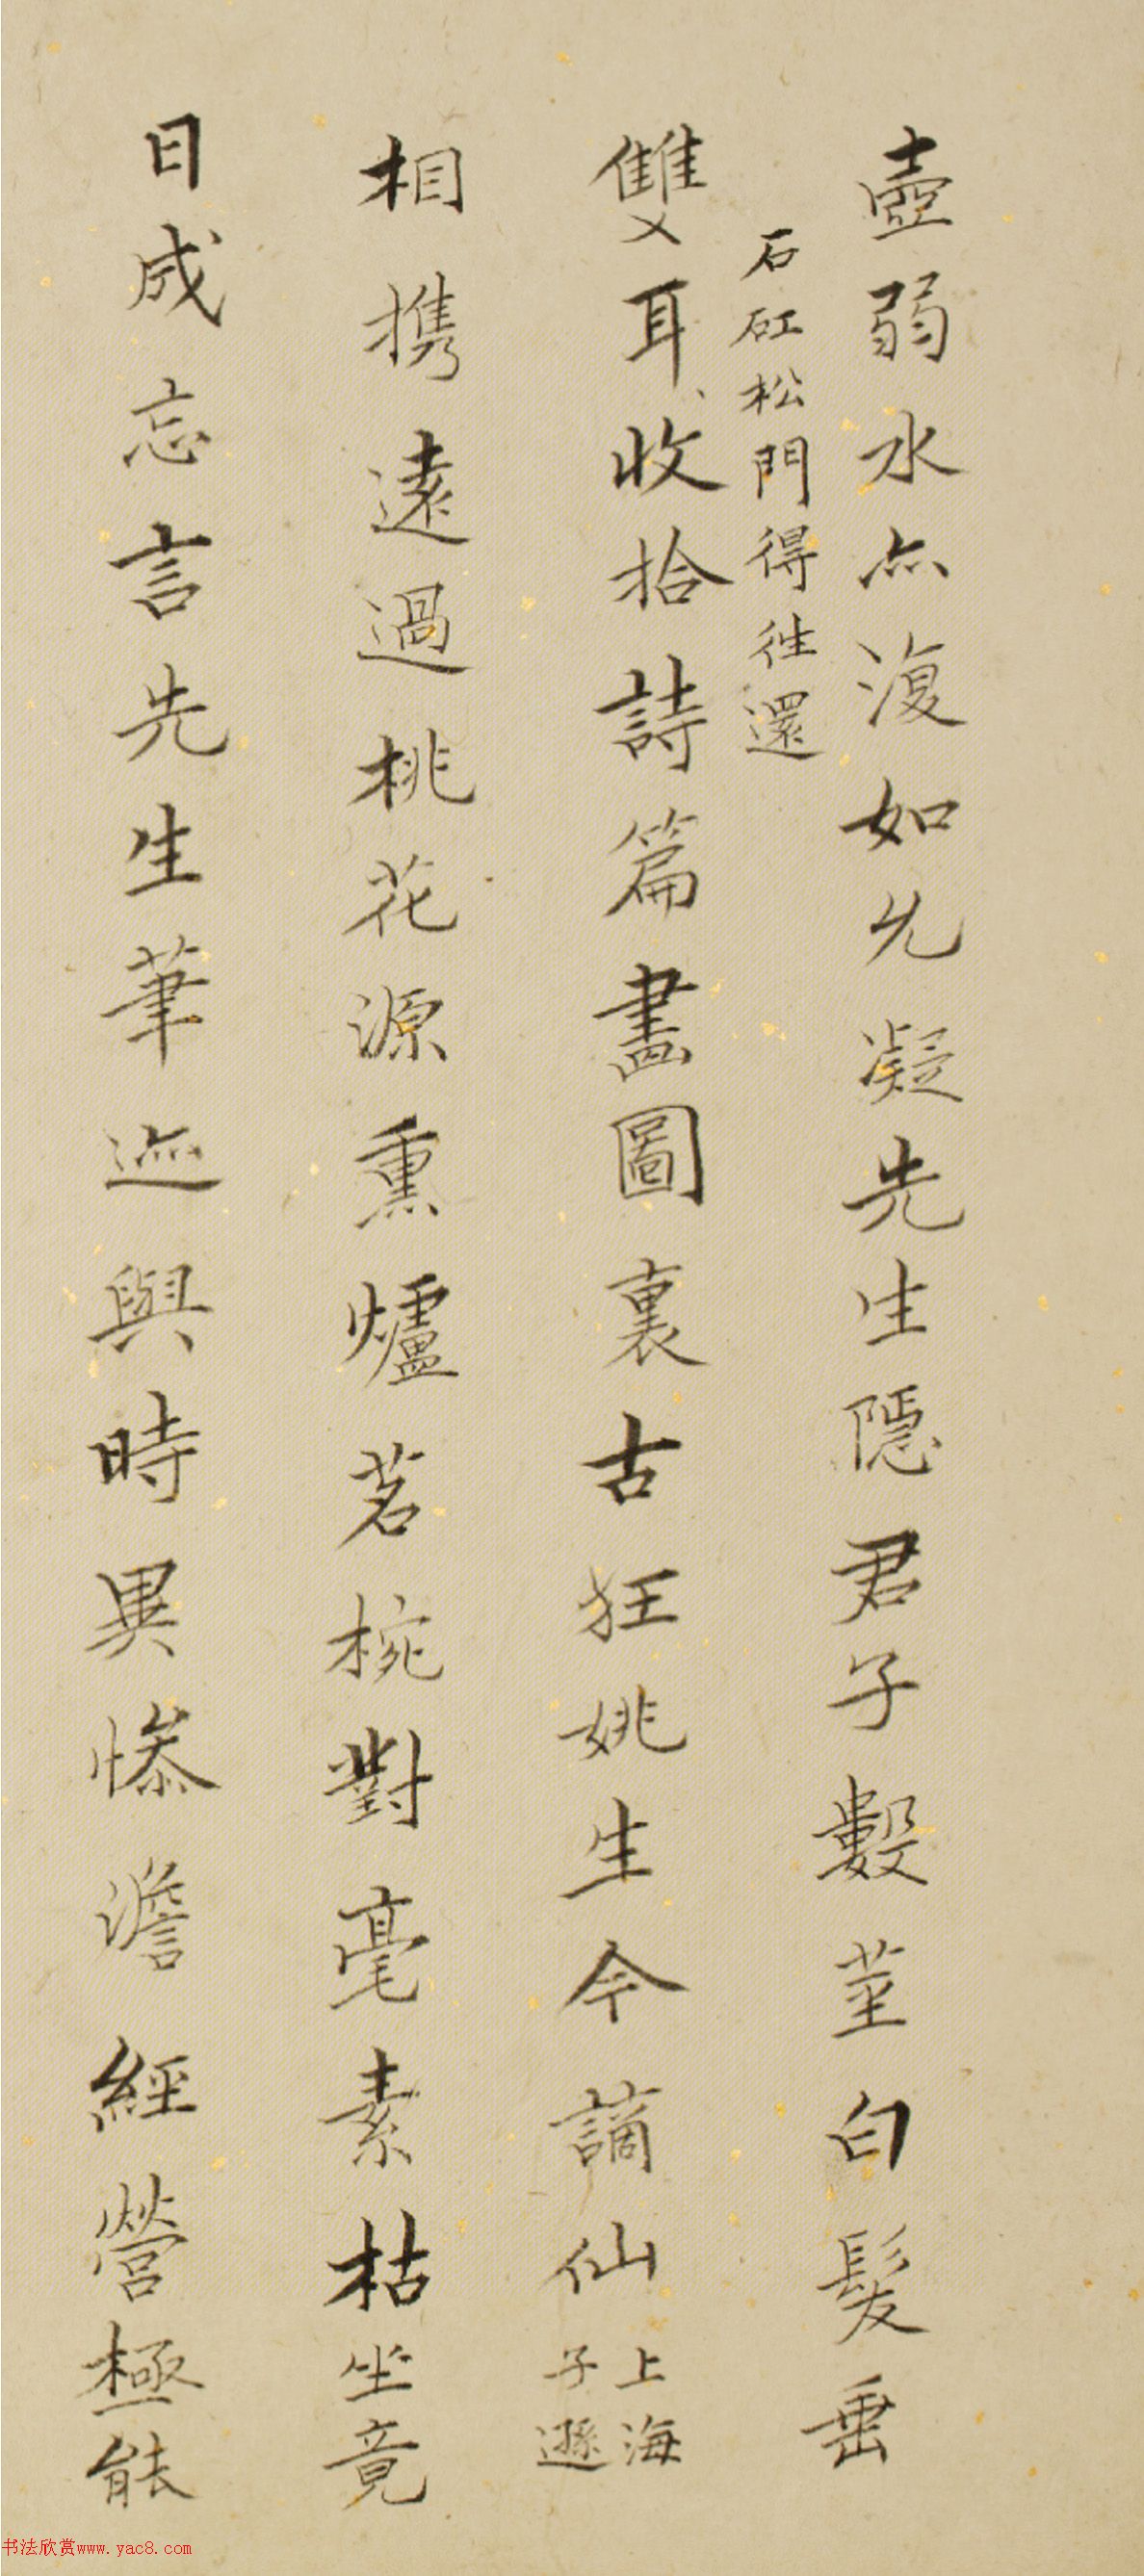 壺弱水亦復如允凝先生隱君子數莖白髮垂
石矼松門得往還
雙耳收拾詩篇畫圖裏古狂姚生今謫仙上海子遜
相携遠過桃花源熏爐茗椀對毫素枯坐竟
日成忘言先生筆迹與時異慘澹經營極能
书法欣赏www.yac8.com